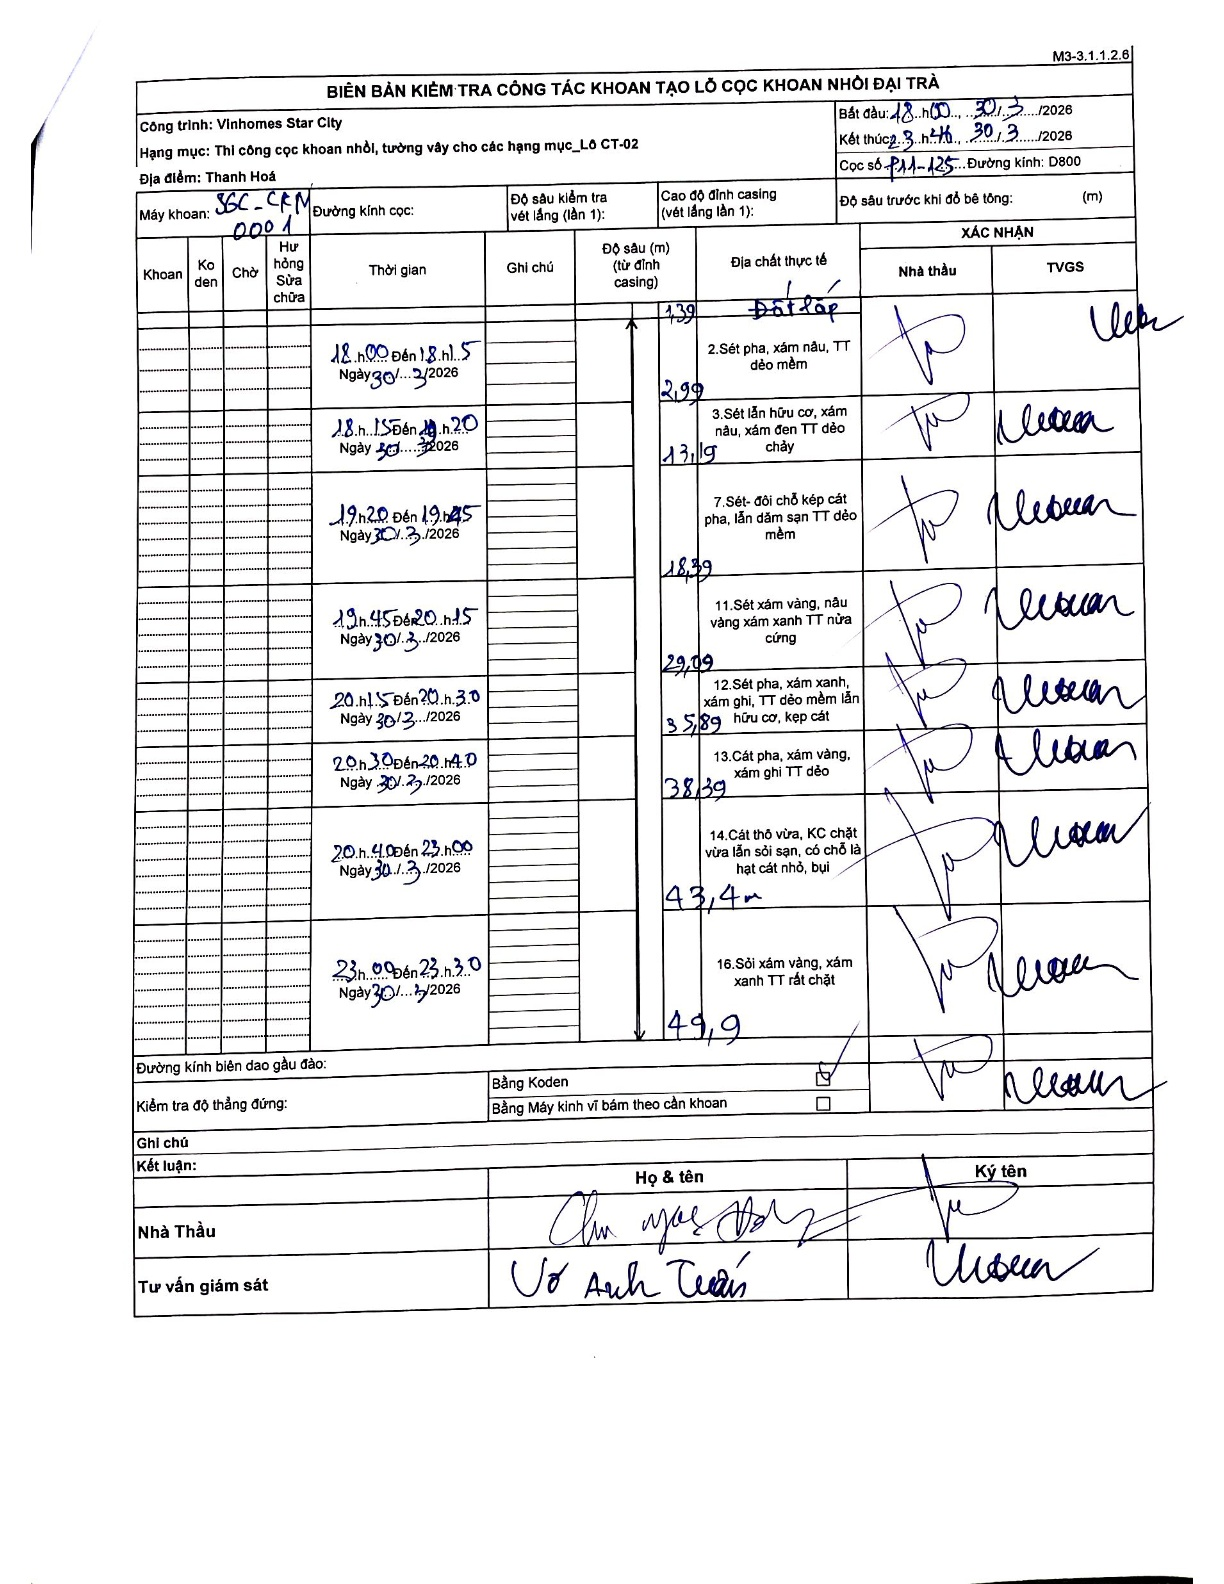 M3-3.1.1.2.6
BIÊN BẢN KIỂM TRA CÔNG TÁC KHOAN TẠO LỖ CỌC KHOAN NHỒI ĐẠI TRÀ
Công trình: Vinhomes Star City
Hạng mục: Thi công cọc khoan nhồi, tường vây cho các hạng mục_Lô CT-02
Địa điểm: Thanh Hoá
Bắt đầu: 18 h 00, 30/3/2026
Kết thúc: 23 h 46, 30/3/2026
Cọc số P11-125 Đường kính: D800
Máy khoan: SGC-CKN 0001
Đường kính cọc:
Độ sâu kiểm tra vét lắng (lần 1):
Cao độ đỉnh casing (vét lắng lần 1):
Độ sâu trước khi đổ bê tông: (m)
Khoan
Ko den
Chờ
Hư hỏng Sửa chữa
Thời gian
Ghi chú
Độ sâu (m) (từ đỉnh casing)
Địa chất thực tế
XÁC NHẬN
Nhà thầu
TVGS
1,39
Đất lấp
18 h 00 Đến 18 h 15
Ngày 30/3/2026
2.Sét pha, xám nâu, TT
dẻo mềm
2,99
18 h 15 Đến 19 h 20
Ngày 30/3/2026
3.Sét lẫn hữu cơ, xám
nâu, xám đen TT dẻo
chảy
13,19
19 h 20 Đến 19 h 45
Ngày 30/3/2026
7.Sét- đôi chỗ kép cát
pha, lẫn dăm sạn TT dẻo
mềm
18,39
19 h 45 Đến 20 h 15
Ngày 30/3/2026
11.Sét xám vàng, nâu
vàng xám xanh TT nửa
cứng
29,09
20 h 15 Đến 20 h 30
Ngày 30/3/2026
12.Sét pha, xám xanh,
xám ghi, TT dẻo mềm lẫn
hữu cơ, kẹp cát
35,89
20 h 30 Đến 20 h 40
Ngày 30/3/2026
13.Cát pha, xám vàng,
xám ghi TT dẻo
38,39
20 h 40 Đến 23 h 00
Ngày 30/3/2026
14.Cát thô vừa, KC chặt
vừa lẫn sỏi sạn, có chỗ là
hạt cát nhỏ, bụi
43,4m
23 h 00 Đến 23 h 30
Ngày 30/3/2026
16.Sỏi xám vàng, xám
xanh TT rất chặt
49,9
Đường kính biên dao gầu đào:
Kiểm tra độ thẳng đứng:
Bằng Koden
Bằng Máy kinh vĩ bám theo cần khoan
Ghi chú
Kết luận:
Họ & tên
Ký tên
Nhà Thầu
Tư vấn giám sát
Võ Anh Tuấn